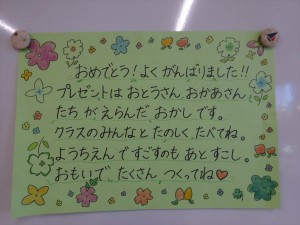 おめでとう！よく がんばりました!!
プレゼントは おとうさん、おかあさん
たち が えらんだ おかし です。
クラスのみんなと たのしく たべてね。
ようちえん で すごすのも あとすこし。
おもいで たくさん つくってね♡